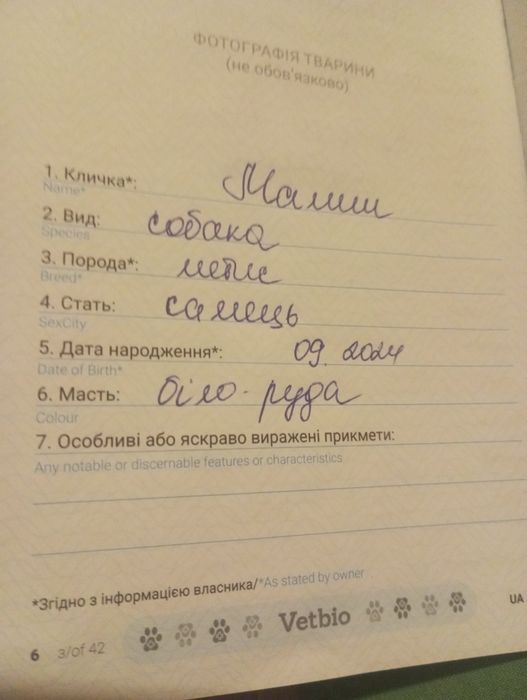 ФОТОГРАФІЯ ТВАРИНИ
(не обов'язково)
1. Кличка*: Малиш
Name*
2. Вид: собака
Species
3. Порода*: метис
Breed*
4. Стать: самець
SexCity
5. Дата народження*: 09. 2024
Date of Birth*
6. Масть: біло-руда
Colour
7. Особливі або яскраво виражені прикмети:
Any notable or discernable features or characteristics
*Згідно з інформацією власника/*As stated by owner
6 3/of 42 Vetbio UA